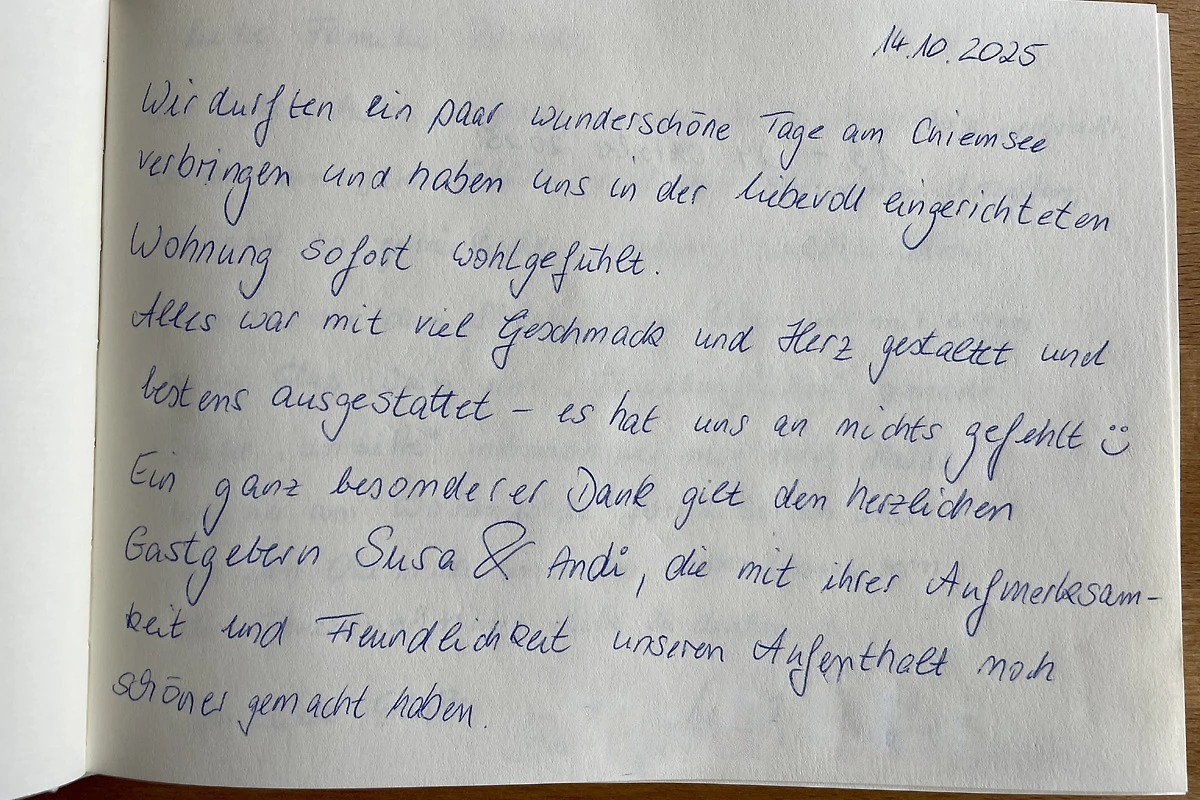 14.10.2025
Wir durften ein paar wunderschöne Tage am Chiemsee
verbringen und haben uns in der liebevoll eingerichteten
Wohnung sofort wohlgefühlt.
Alles war mit viel Geschmack und Herz gestaltet und
bestens ausgestattet – es hat uns an nichts gefehlt ☺
Ein ganz besonderer Dank gilt den herzlichen
Gastgebern Susa & Andi, die mit ihrer Aufmerksam-
keit und Freundlichkeit unseren Aufenthalt noch
schöner gemacht haben.